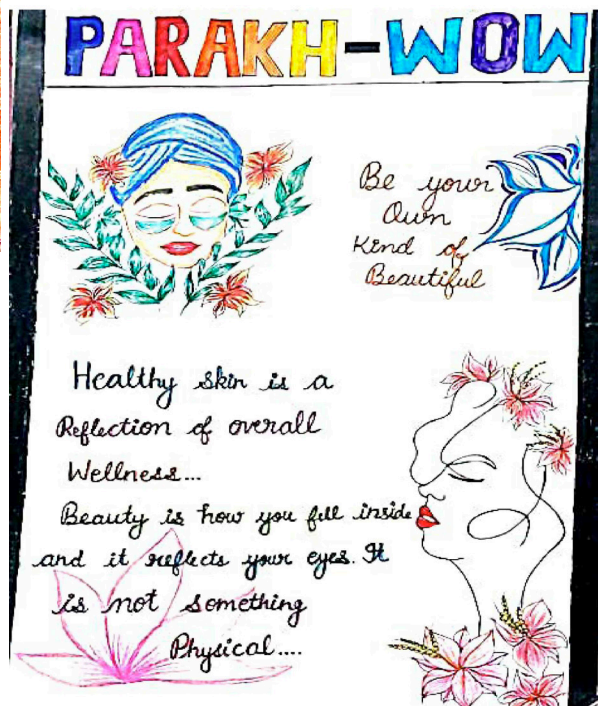 PARAKH-WOW
Be your
Own
Kind of
Beautiful
Healthy skin is a
Reflection of overall
Wellness...
Beauty is how you fell inside
and it reflects your eyes. It
is not something
Physical....